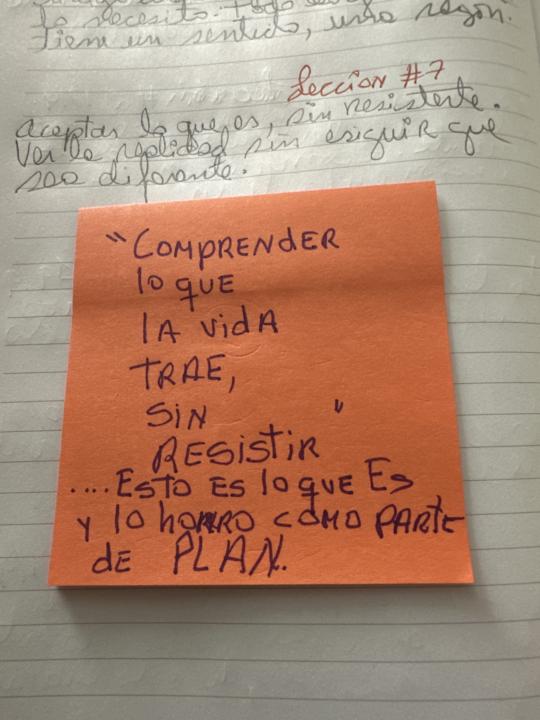 lo necesito. Todo
tiene un sentido, una razón.
Lección #7
aceptar lo que es, sin resistirte.
Ver la realidad sin exiguir que
sea diferente.
"COMPRENDER
lo QUE
lA vidA
TRAE,
SiN "
RESistiR
....Esto Es lo QUE Es
y lo hoNRo coMo PARtE
dE PLAN.